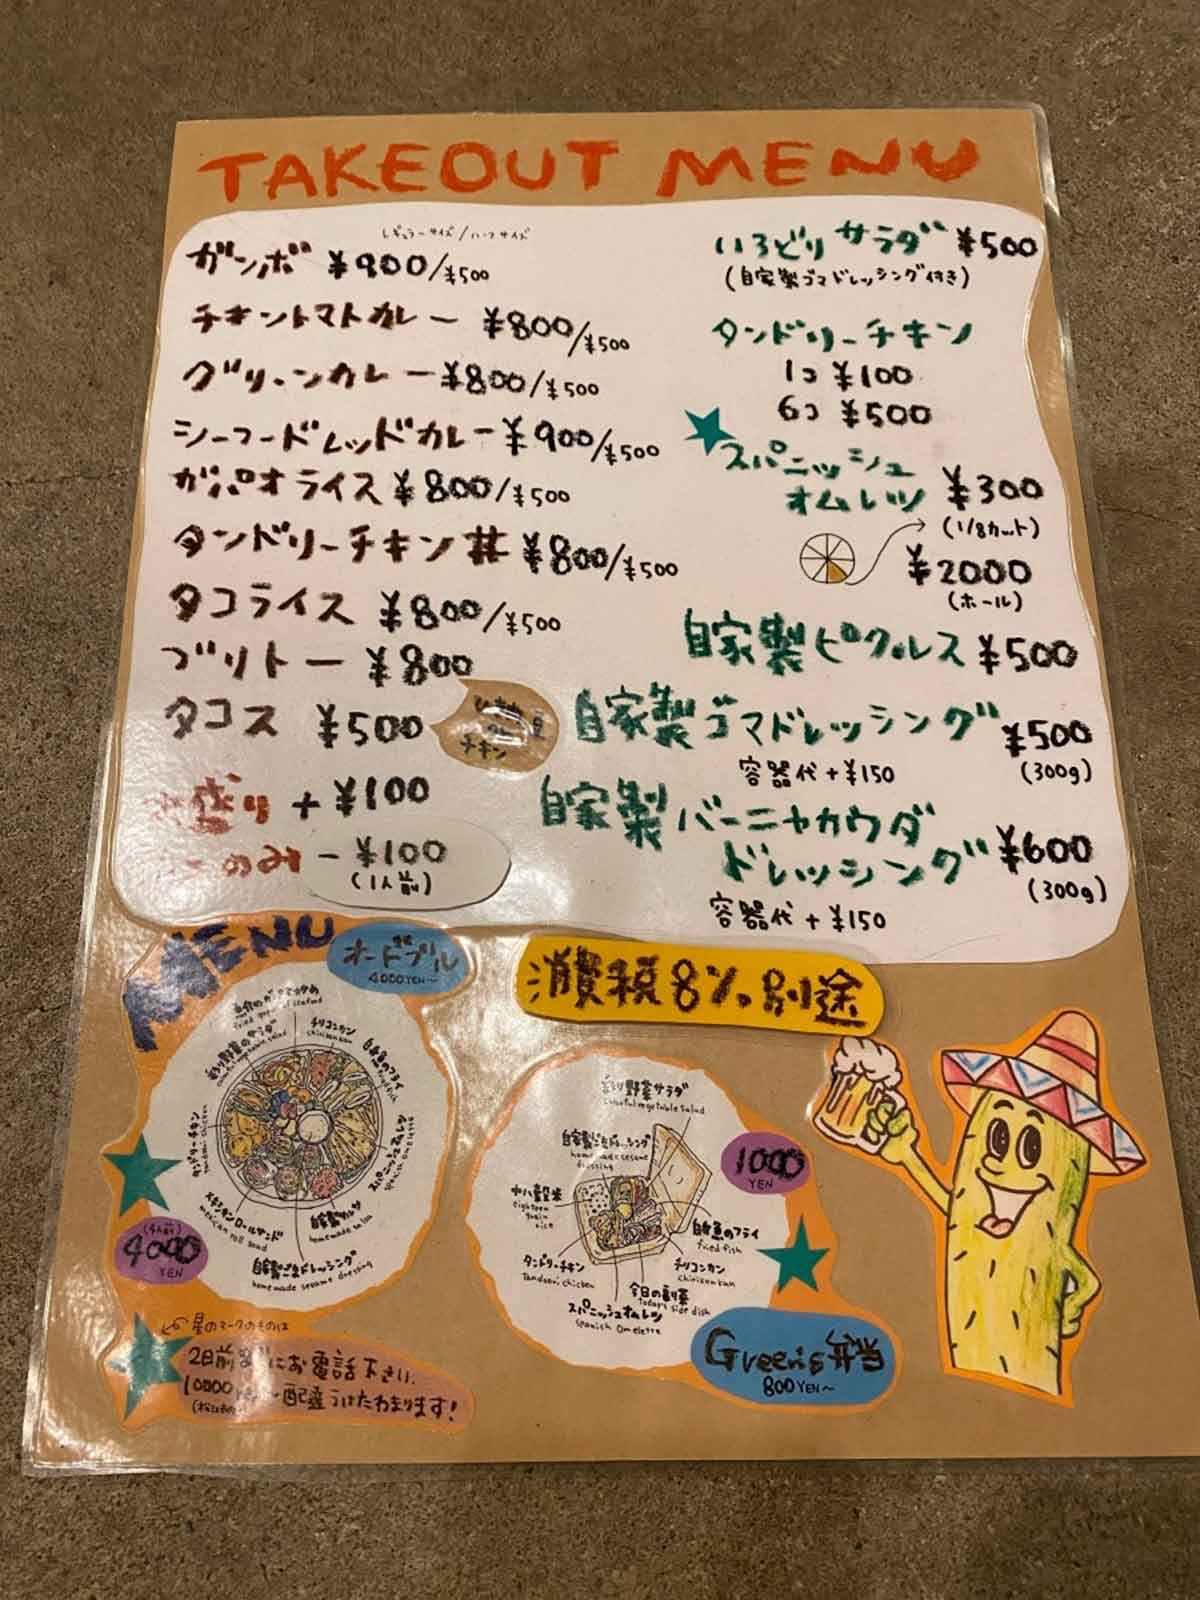 TAKEOUT MENU
レギュラーサイズ/ハーフサイズ
ガンボ ¥900/¥500
チキントマトカレー ¥800/¥500
グリーンカレー ¥800/¥500
シーフードレッドカレー ¥900/¥500
ガパオライス ¥800/¥500
タンドリーチキン丼 ¥800/¥500
タコライス ¥800/¥500
ブリトー ¥800
タコス ¥500
チキン
盛り +¥100
のみ -¥100
(1人前)
いろどりサラダ ¥500
(自家製ゴマドレッシング付き)
タンドリーチキン
1コ ¥100
6コ ¥500
スパニッシュ
オムレツ ¥300
(1/8カット)
¥2000
(ホール)
自家製ピクルス ¥500
自家製ゴマドレッシング ¥500
容器代+¥150 (300g)
自家製バーニャカウダ
ドレッシング ¥600
(300g)
容器代+¥150
消費税8%別途
MENU
オードブル
4000YEN~
チリコンカン
chiriconkan
白身のフライ
スパニッシュオムレツ
spanish omelette
自家製サルサ
homemade salsa
自家製ごまドレッシング
homemade sesame dressing
メキシカンロールサンド
mexican roll sand
タンドリーチキン
tandoori chicken
彩り野菜のサラダ
colorful vegetable salad
(4人前)
4000
YEN
彩り野菜サラダ
colorful vegetable salad
自家製ごまドレッシング
homemade sesame
dressing
十八穀米
eighteen
grain
rice
タンドリーチキン
Tandoori chicken
スパニッシュオムレツ
spanish Omelette
今日の副菜
Today's side dish
チリコンカン
chiriconkan
白身魚のフライ
fried fish
1000
YEN
Green's弁当
800YEN~
星のマークのものは
2日前までにお電話下さい。
10000 ~配達うけたまわります!